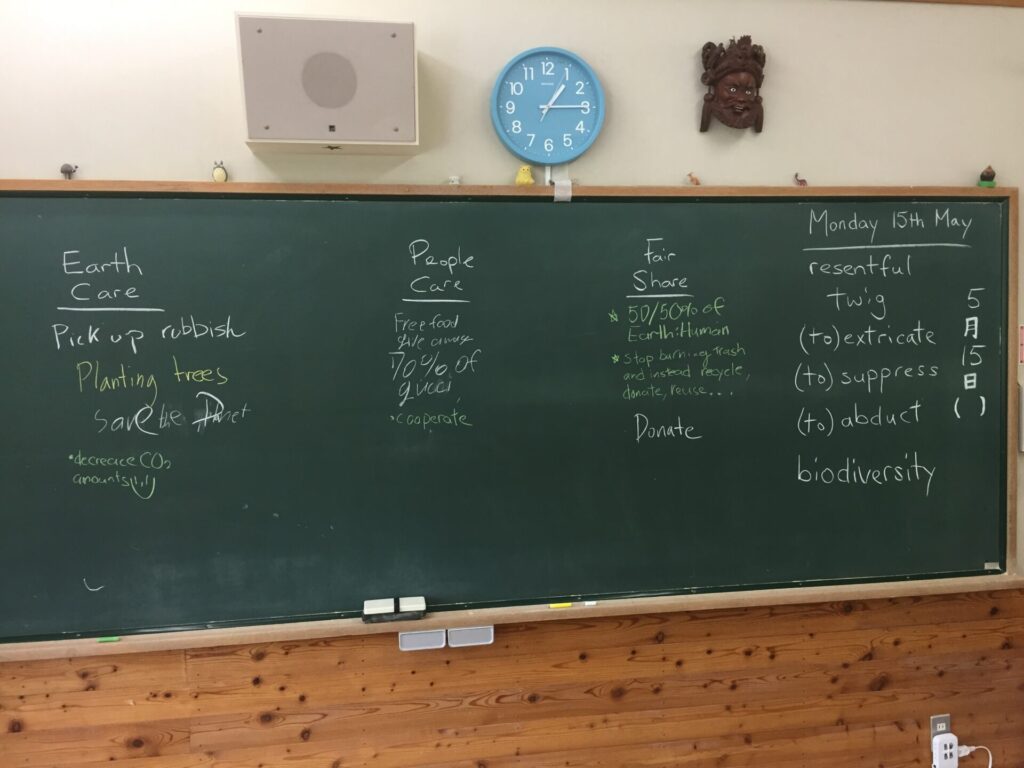 12
1
2
3
4
5
6
7
8
9
10
11
Earth
Care
Pick up rubbish
Planting trees
Save the
•decreace CO₂
amounts
People
Care
Free food
70% of
gucci
•cooperate
Fair
Share
50/50% of
Earth:Human
Stop burning trash
and instead recycle,
donate, reuse...
Donate
Monday 15th May
resentful
twig
(to) extricate
(to) suppress
(to) abduct
biodiversity
5
月
15
日
( )